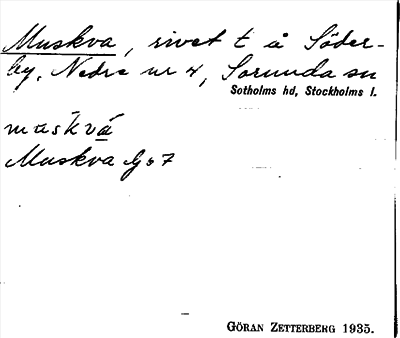 Muskva, rivet t å Söder-
by, Nedre nr 4, Sorunda sn
Sotholms hd, Stockholms l.
muskvá
Muskva Gs 7
GÖRAN ZETTERBERG 1935.